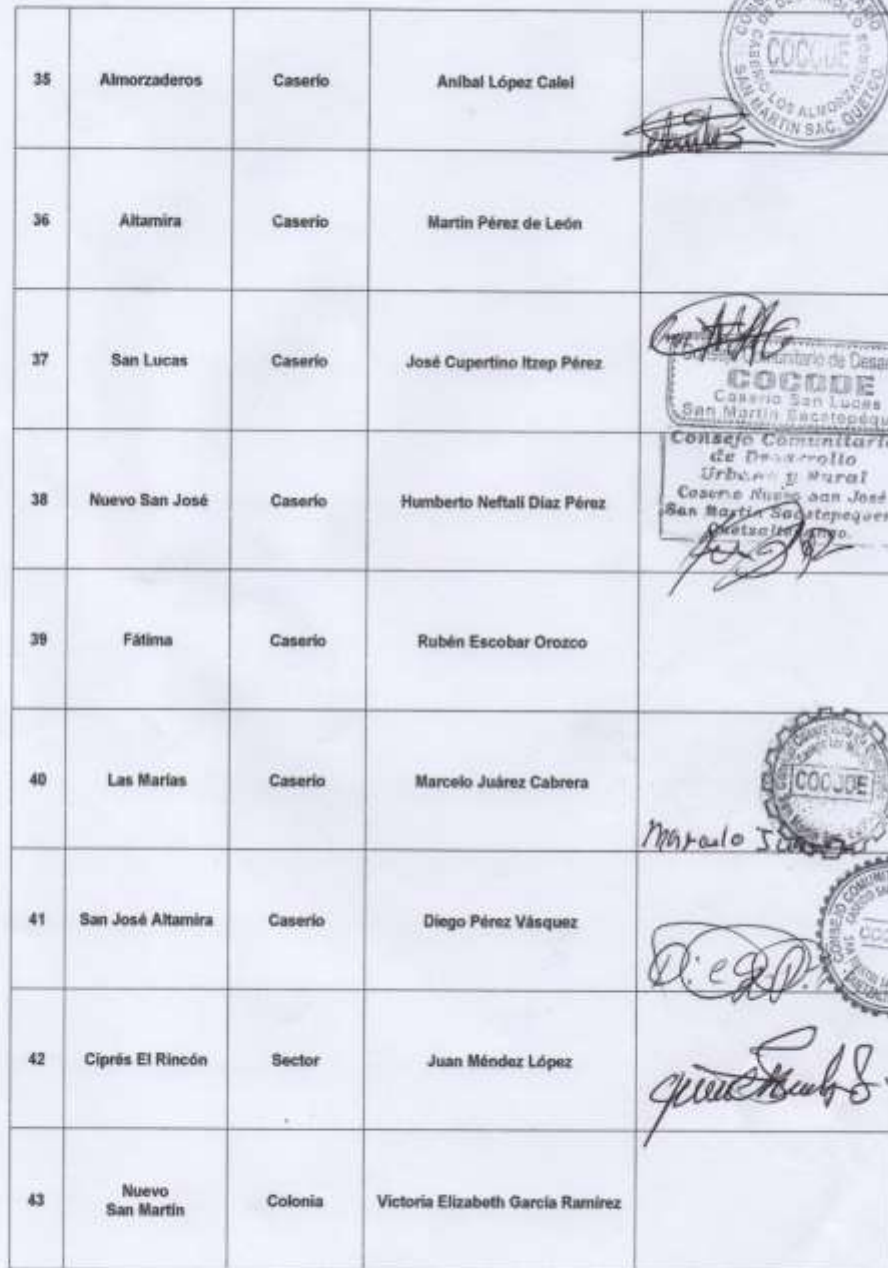 35 Almorzaderos Caserío Aníbal López Calel
COCODE
LOS ALMORZADEROS
SAN MARTIN SAC. QUETGO.
36 Altamira Caserío Martin Pérez de León
37 San Lucas Caserío José Cupertino Itzep Pérez
COCODE
Caserio San Lucas
San Martin
38 Nuevo San José Caserío Humberto Neftalí Díaz Pérez
Consejo Comunitario
de Desarrollo
Urbano y Rural
Caserio Nuevo San José
San Martin
39 Fátima Caserío Rubén Escobar Orozco
40 Las Marías Caserío Marcelo Juárez Cabrera
COCODE
Marcelo
41 San José Altamira Caserío Diego Pérez Vásquez
Diego P.
42 Ciprés El Rincón Sector Juan Méndez López
43 Nuevo
San Martín Colonia Victoria Elizabeth García Ramírez